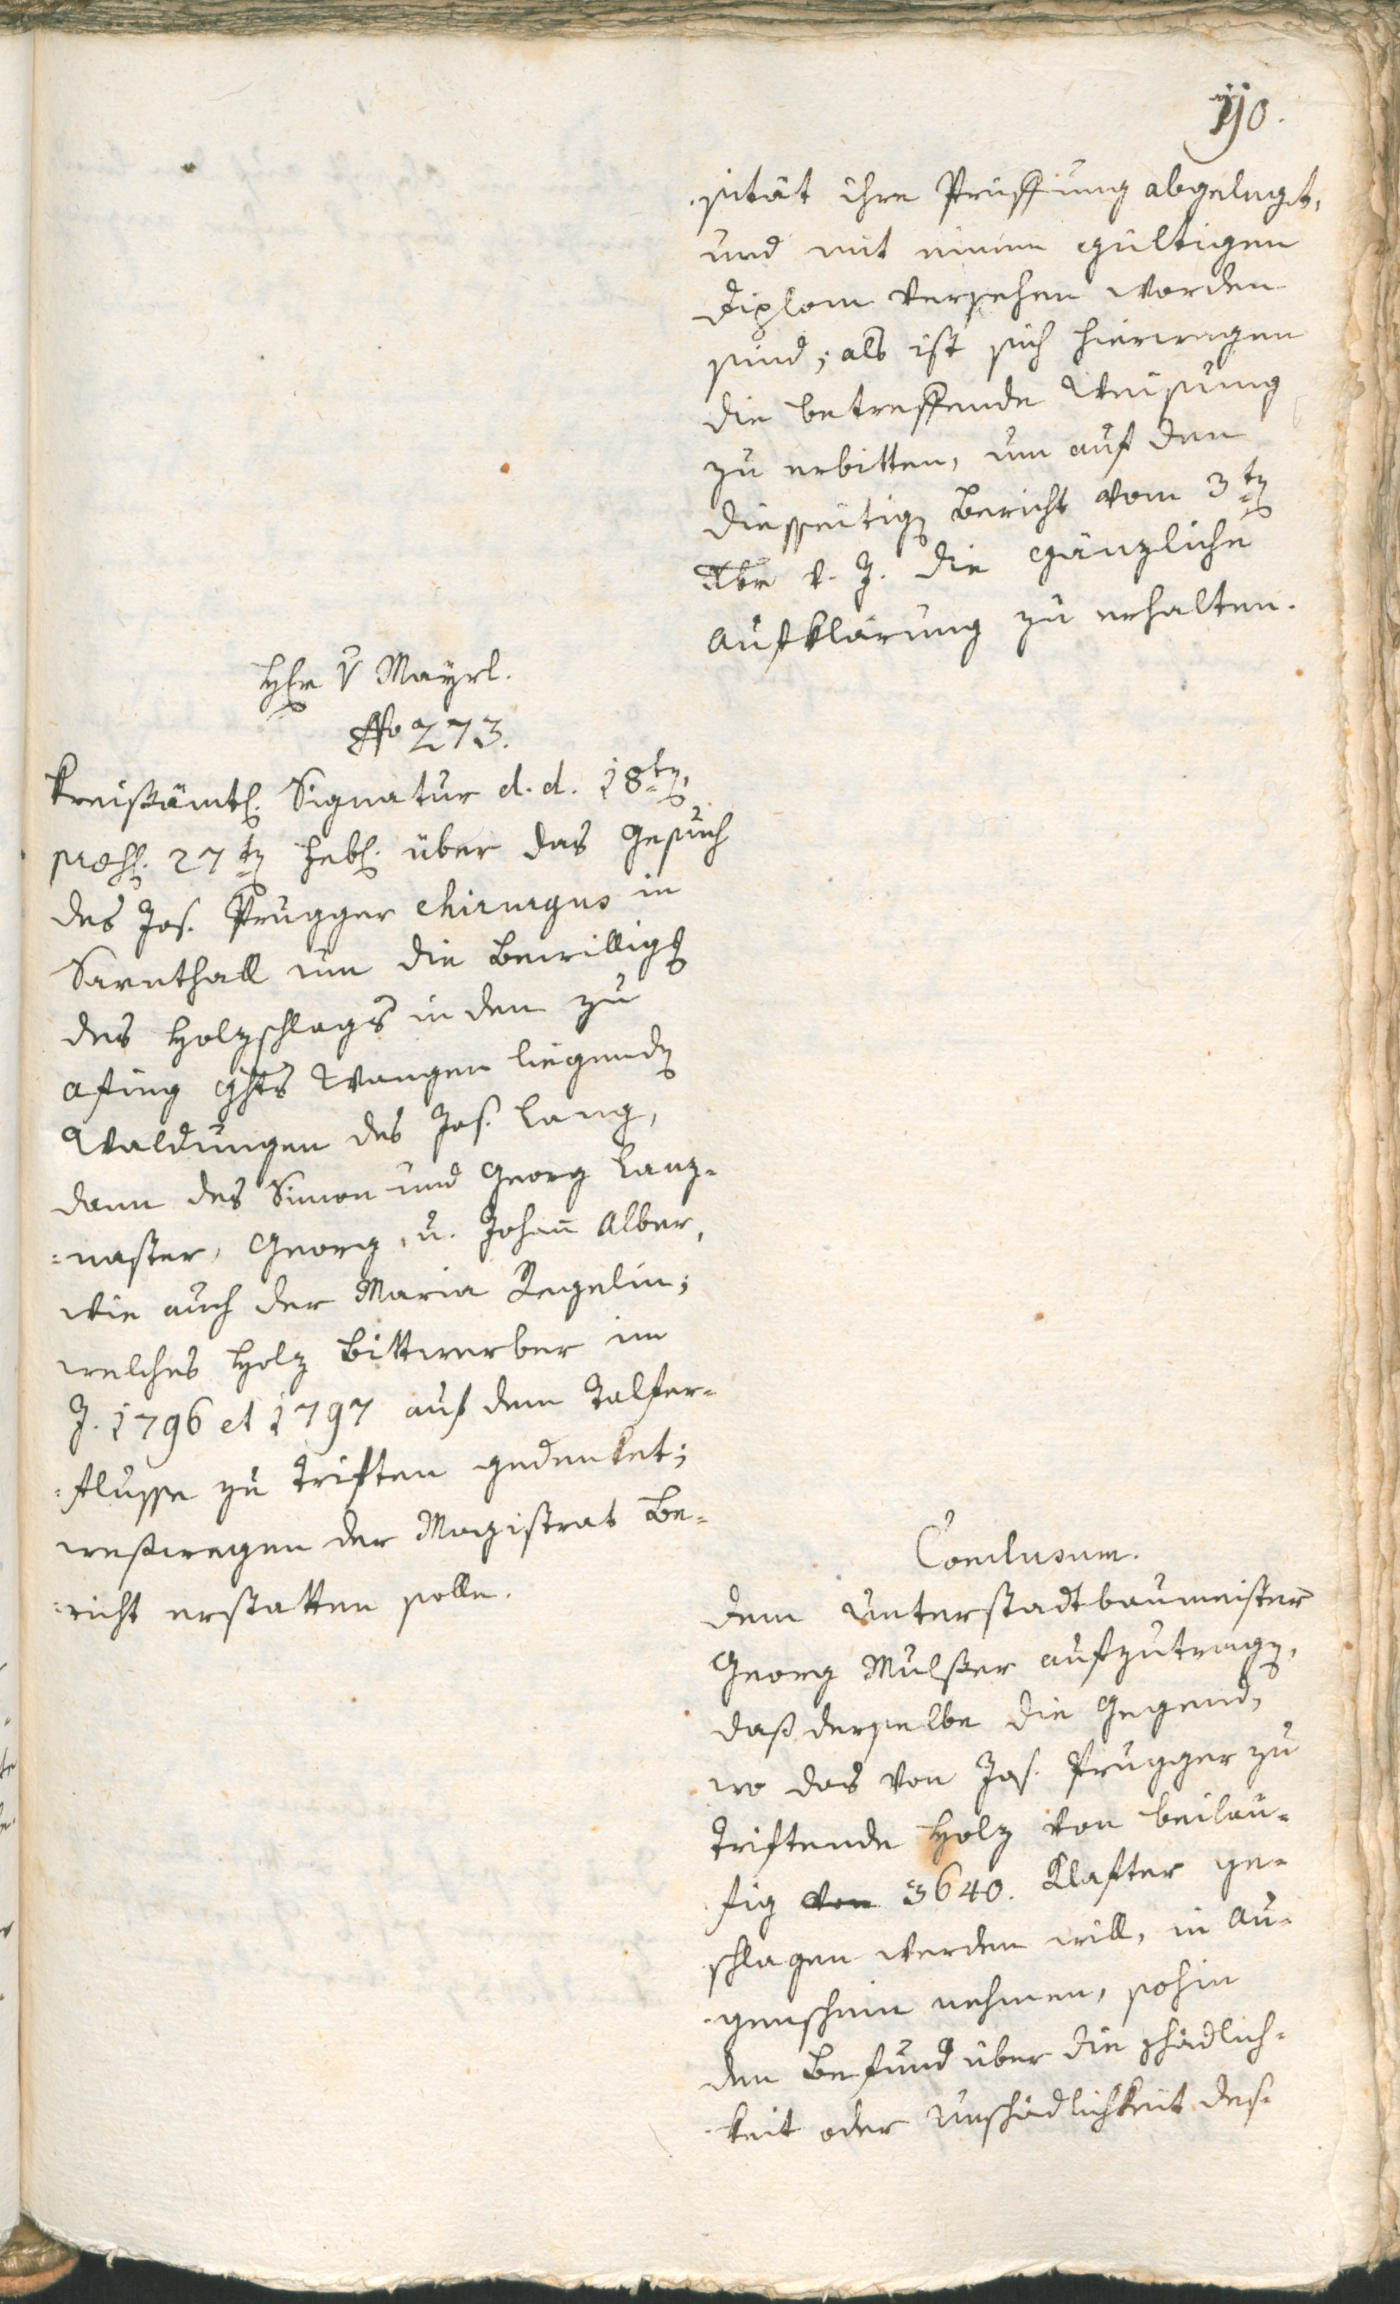 110.
sität ihre Prüffung abgelegt,
und mit einem gültigen
Diplom versehen worden
sind; als ist sich hierwegen
die betreffende Weisung
zu erbitten, um auf den
diesseitigen Bericht vom 3ten
Xbr v. J. die gänzliche
Aufklärung zu erhalten.
Hr v Mayrl.
No 273.
Kreißämtl. Signatur d. d. 18ten,
præs. 27ten Feb. über das Gesuch
des Jos. Prugger chirurgus in
Sarnthall um die Bewilligg
des Holzschlags in den zu
Afing Ghts Wangen liegenden
Waldungen des Jos. Lang,
dann des Simon und Georg Lanz-
=naster, Georg, u. Johann Alber,
wie auch der Maria Regelin;
welches Holz Bittwerber im
J. 1796 et 1797 auf dem Talfer-
=flusse zu Triften gedenket;
weßwegen der Magistrat Be-
=richt erstatten solle.
Conclusum.
Dem Unterstadtbaumeister
Georg Mulser aufzutragen,
daß derselbe die Gegend,
wo das von Jos. Prugger zu
Triftende Holz von beiläu-
fig von 3640. Klafter ge-
schlagen werden will, in Au-
genschein nehmen, sohin
den Befund über die schädlich-
keit oder Unschädlichkeit des-